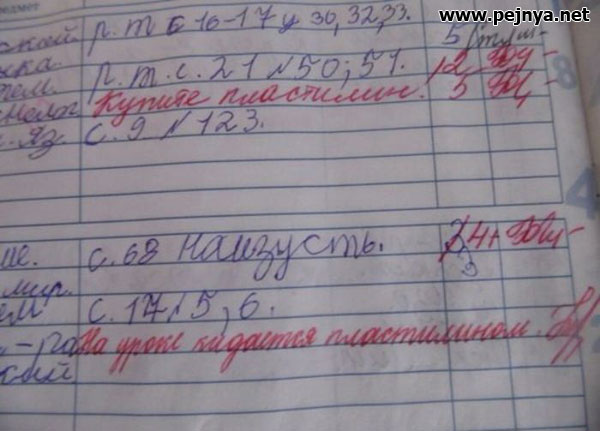 www.pejnya.net
предмет
ской р.т с 16-17 у 30, 32, 33. 5
ка.
тем. р.т.с. 21 №50; 51. 2
Купите пластилин. 5
. яз. с. 9 №123.
с. 68 наизусть. 4+
мир.
ем с. 17 №5, 6.
На уроке кидается пластилином.